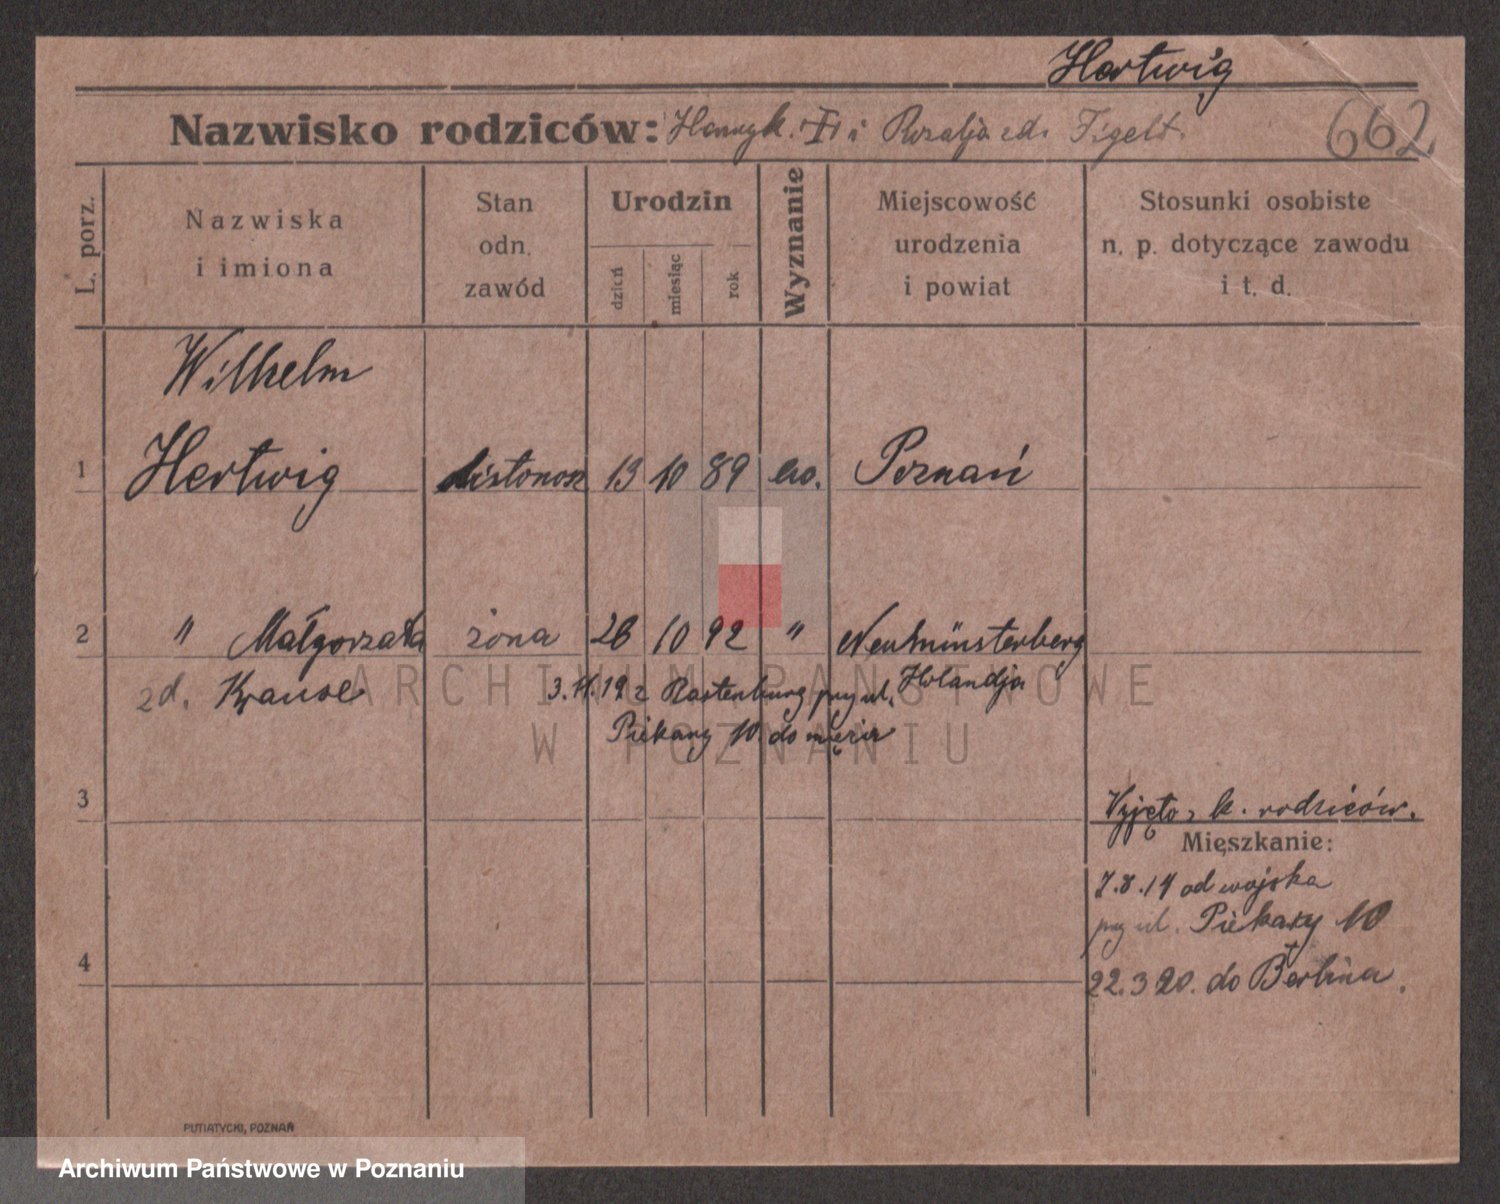 Hertwig
Nazwisko rodziców: Henryk i Rozalja zd. Figelt
662
L. porz.
Nazwiska
i imiona
Stan
odn.
zawód
Urodzin
dzień
miesiąc
rok
Wyznanie
Miejscowość
urodzenia
i powiat
Stosunki osobiste
n. p. dotyczące zawodu
i t. d.
Wilhelm
1 Hertwig listonosz 13 10 89 ew. Poznań
2 " Małgorzata żona 26 10 92 " Neumünsterberg
zd. Krause 3.11.19 z Rastenburg przy ul. Holandja
Piekary 10 do męża
3
Wyjęto z k. rodziców.
Mieszkanie:
7.8.14 od wojska
przy ul. Piekary 10
4
22.3 20. do Berlina.
PUTIATYCKI, POZNAŃ
ARCHIWUM PAŃSTWOWE
W POZNANIU
Archiwum Państwowe w Poznaniu